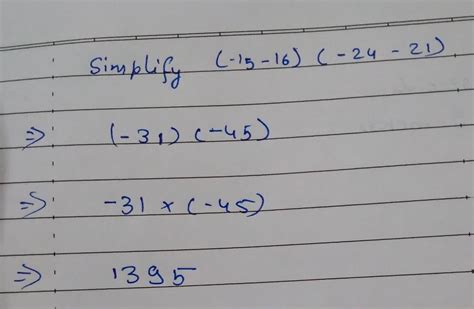 Simplify (-15-16) (-24-21)
⇒ (-31) (-45)
⇒ -31 × (-45)
⇒ 1395